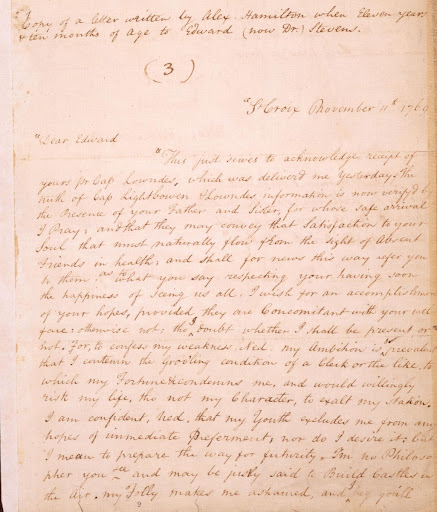 "Copy of a letter written by Alex. Hamilton when Eleven years
& ten months of Age to Edward (now Dr.) Stevens.
(3)
"St Croix November 11th 1769
"Dear Edward
"This just serves to acknowledge receipt of
yours pr Cap Lowndes, which was deliver'd me Yesterday, the
truth of Cap Lightbowen & Lowndes information is now verifyd by
the Presence of your Father and Sister, for whose safe arrival
I Pray; and that they may convey that Satisfaction to your
Soul that must naturally flow from the sight of Absent
Friends in health; and shall for news this way refer you
to them. as to what you say respecting your having soon
the happiness of seeing us all, I wish for an accomplishment
of your hopes, provided they are Concomitant with your wel
fare; otherwise not; tho' I doubt whether I shall be present or
not. For, to confess my weakness, Ned, my Ambition is prevalent
that I contemn the grov'ling condition of a Clerk or the like, to
which my Fortune &c condemns me, and would willingly
risk my life, tho not my Character, to exalt my Station.
I am confident, Ned, that my Youth excludes me from any
hopes of immediate Preferment; nor do I desire it; but
I mean to prepare the way for futurity. I'm no Philoso
pher you see and may be justly said to Build Castles in
the Air. my Folly makes me ashamed, and beg you'll